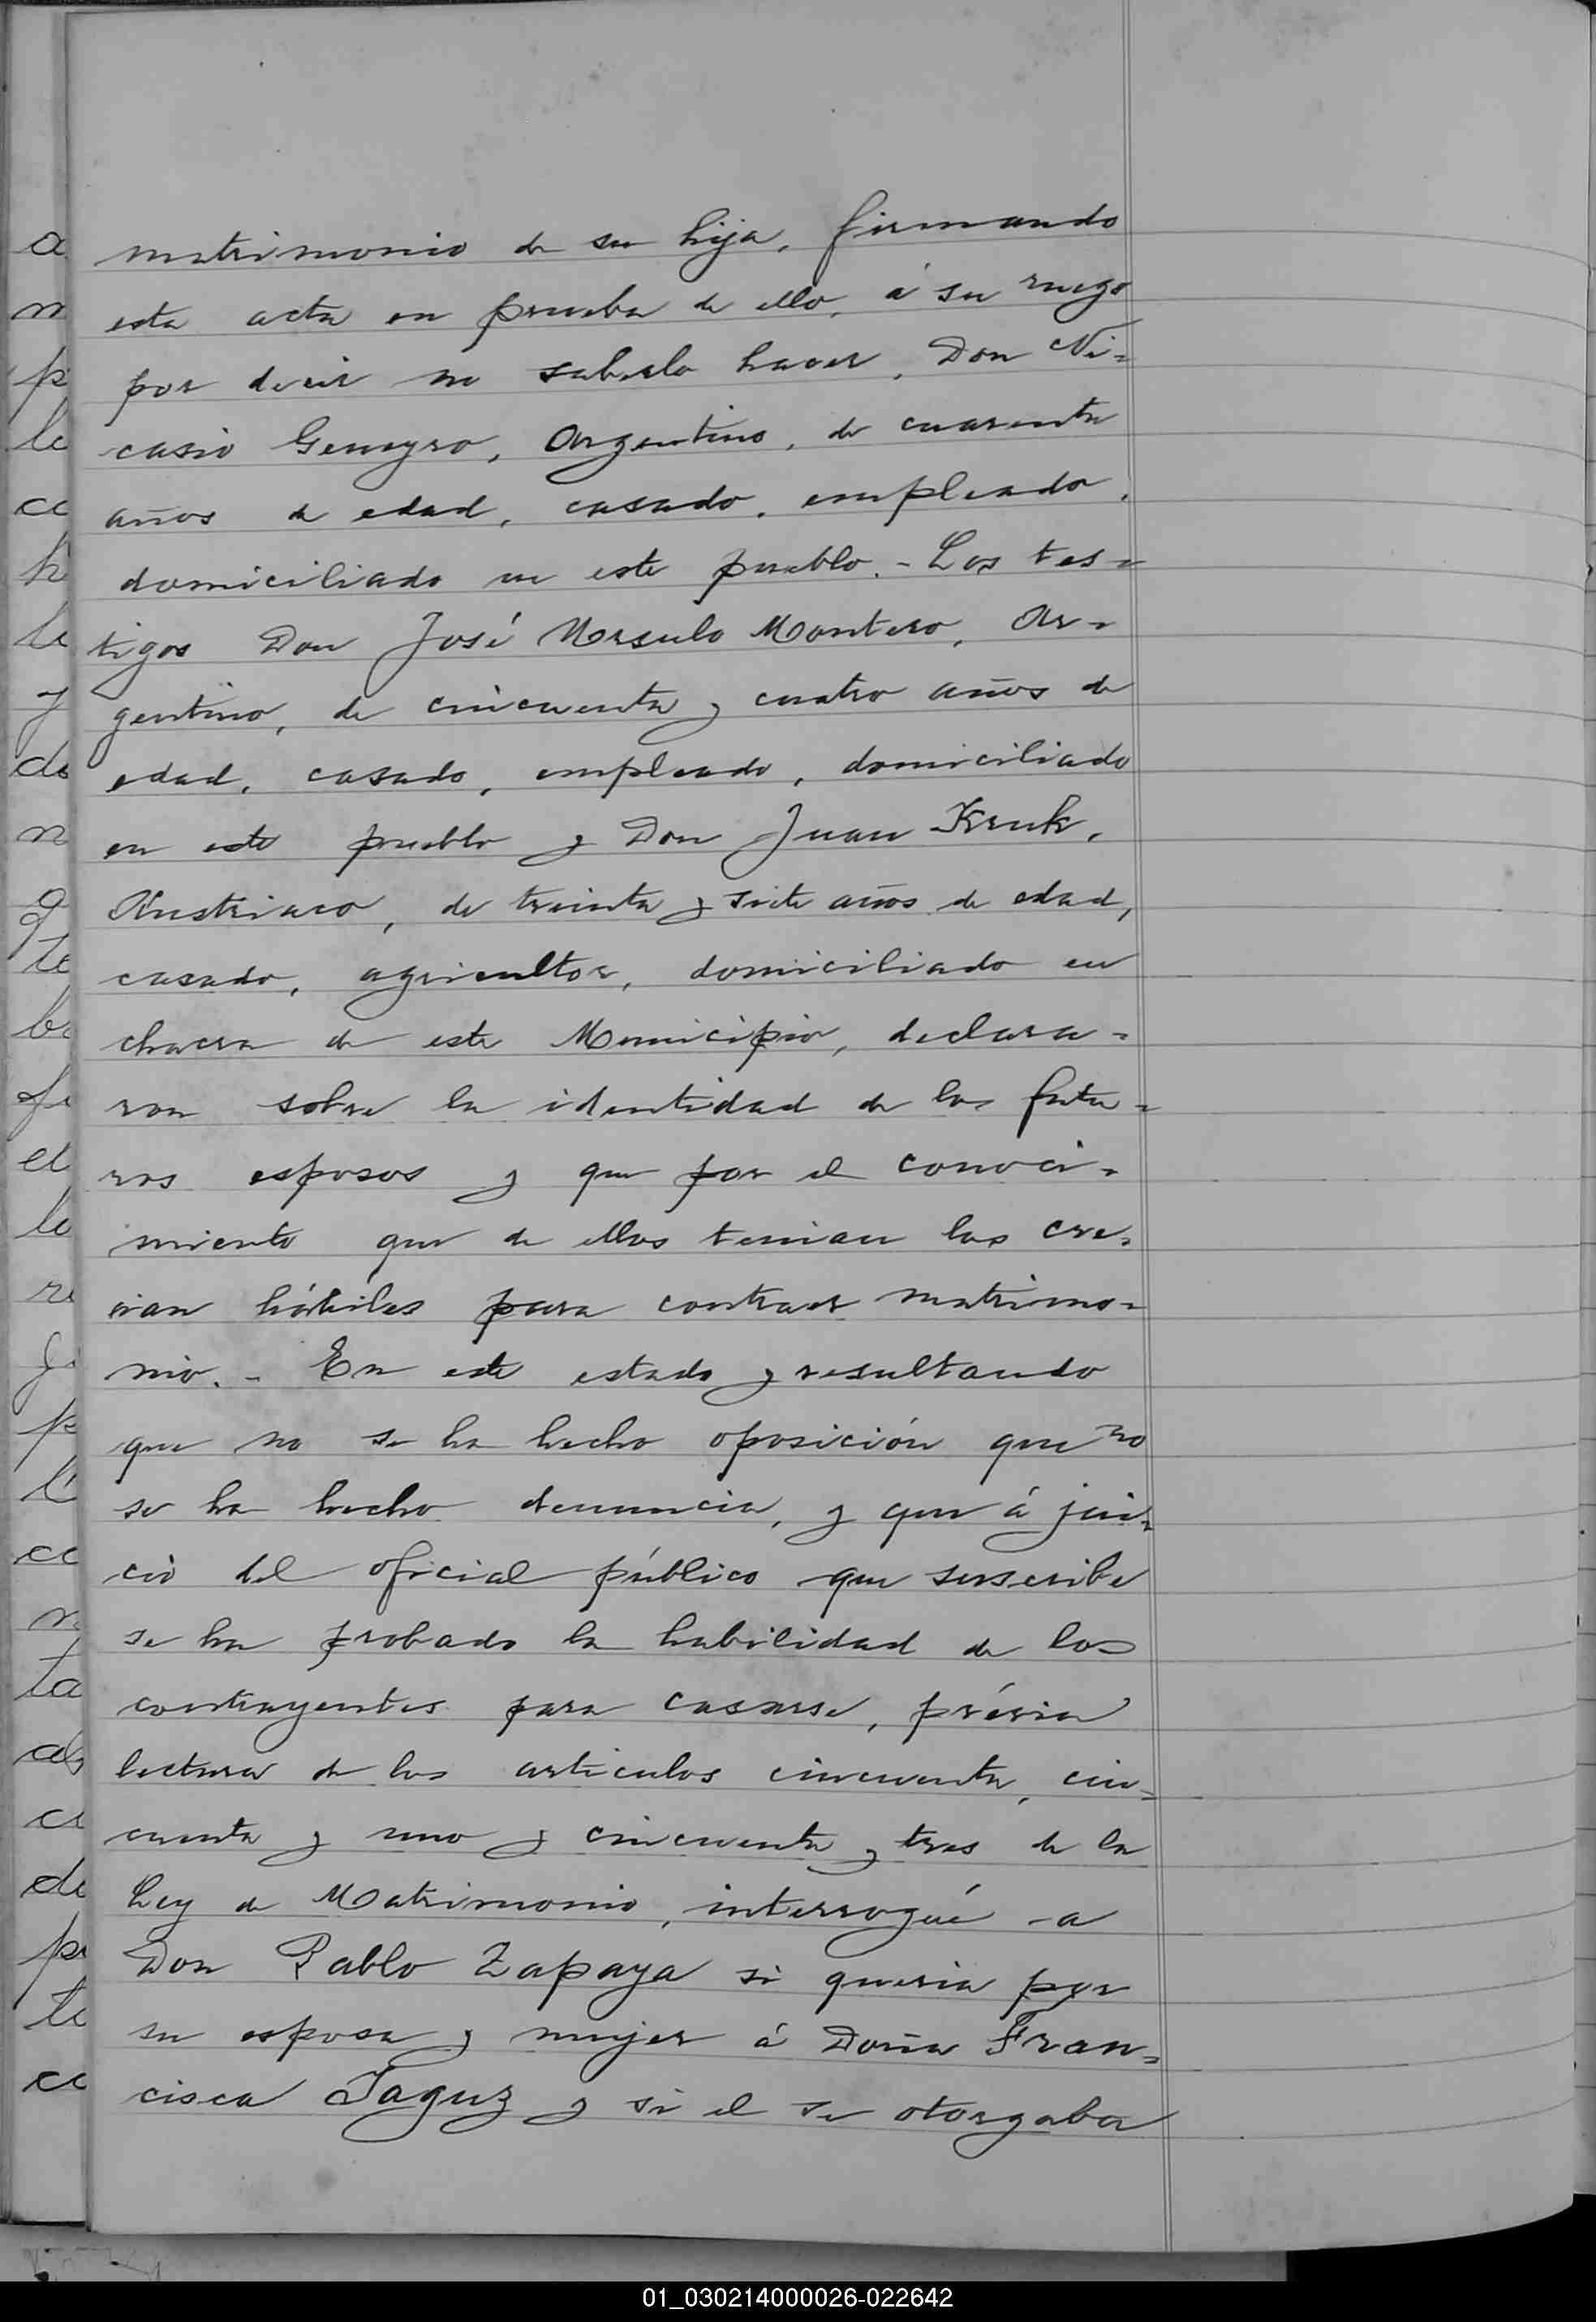 matrimonio de su hija, firmando
esta acta en prueba de ello, á su ruego
por decir no saberlo hacer, Don Ni=
casio Geneyro, Argentino, de cuarenta
años de edad, casado, empleado,
domiciliado en este pueblo.- Los tes=
tigos Don José Ursulo Montero, Ar=
gentino, de cincuenta y cuatro años de
edad, casado, empleado, domiciliado
en este pueblo y Don Juan Kruk,
Austriaco, de treinta y siete años de edad,
casado, agricultor, domiciliado en
chacra de este Municipio, declara=
ron sobre la identidad de los futu=
ros esposos y que por el conoci=
miento que de ellos tenian los cre=
ian hábiles para contraer matrimo=
nio.- En este estado y resultando
que no se ha hecho oposición que no
se ha hecho denuncia, y que á jui=
cio del oficial público que suscribe
se ha probado la habilidad de los
contrayentes para casarse, prévia
lectura de los articulos cincuenta, cin=
cuenta y uno y cincuenta y tres de la
Ley de Matrimonio, interrogué a
Don Pablo Zapaya si queria por
su esposa y mujer á Doña Fran=
cisca Taguz y si el se otorgaba
01_030214000026-022642